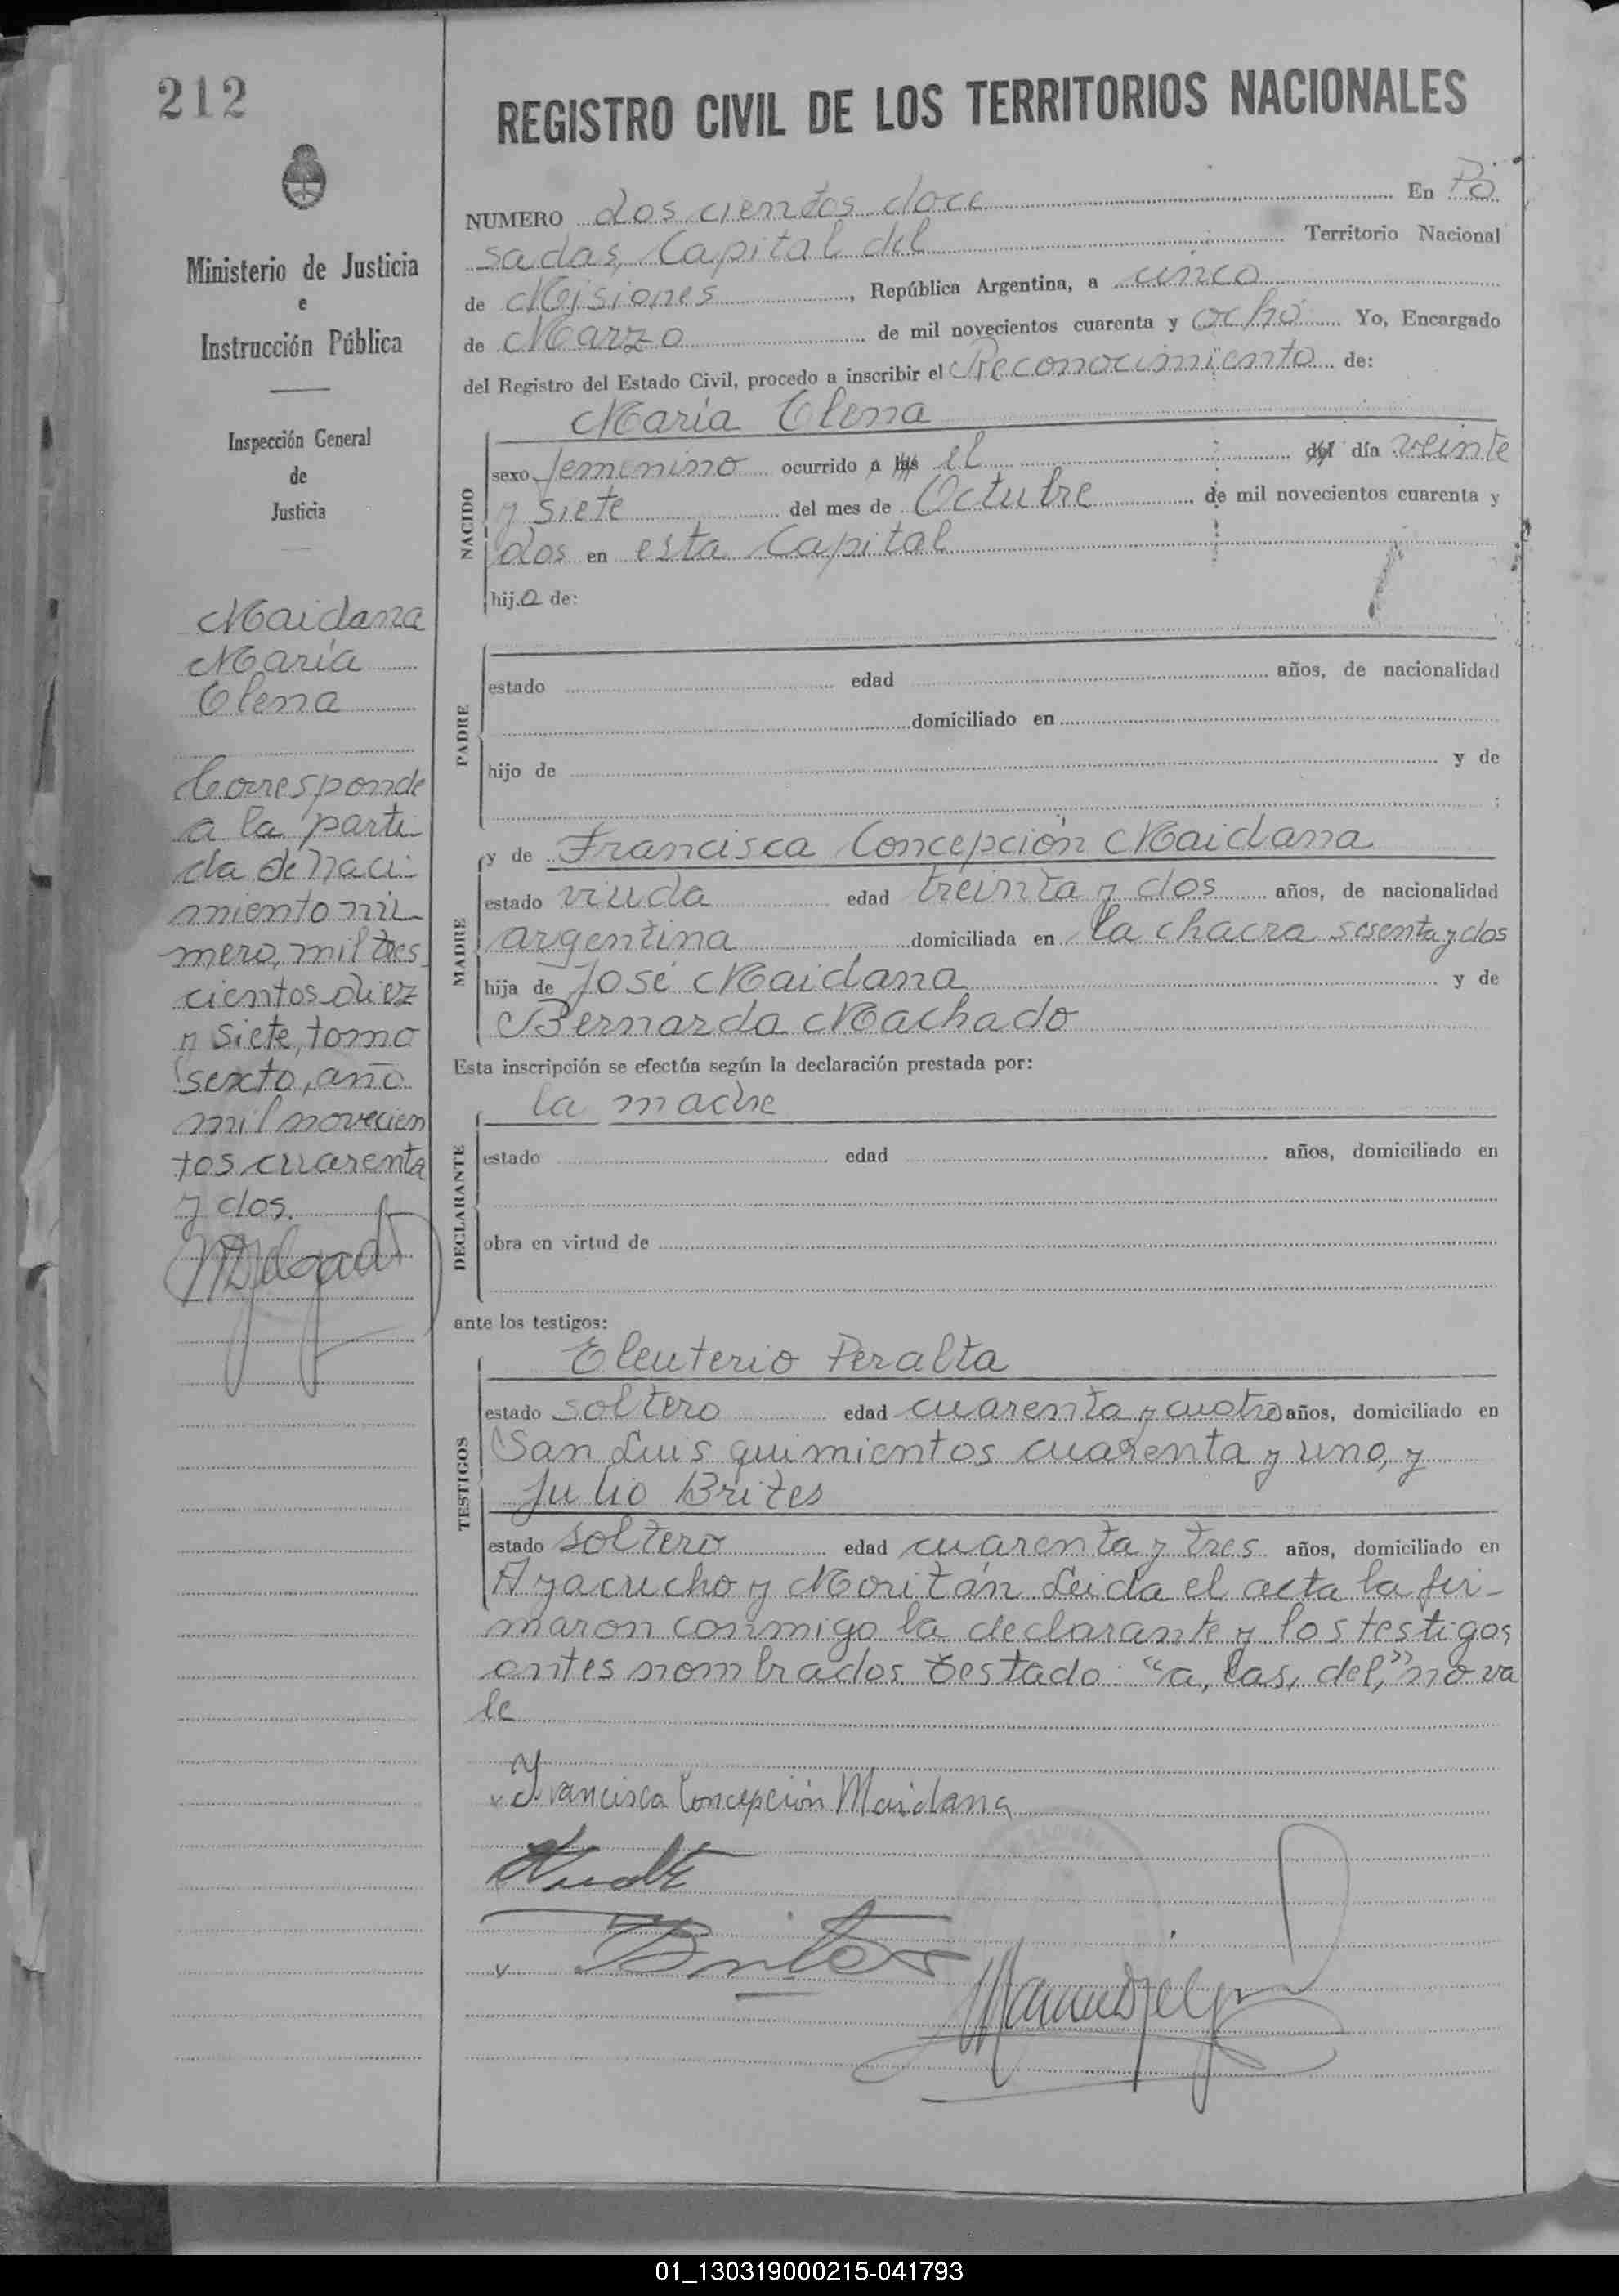 212
REGISTRO CIVIL DE LOS TERRITORIOS NACIONALES
Ministerio de Justicia
e
Instrucción Pública
Inspección General
de
Justicia
Maidana
María
Elena
Corresponde
a la parti
da de naci-
miento nú
mero, mil tres
cientos diez
y siete, tomo
sexto, año
mil novecien
tos cuarenta
y dos.
NUMERO dos cientos doce En Po
sadas, Capital del Territorio Nacional
de Misiones, República Argentina, a cinco
de Marzo de mil novecientos cuarenta y ocho Yo, Encargado
del Registro del Estado Civil, procedo a inscribir el Reconocimiento de:
María Elena
NACIDO
sexo femenino ocurrido a las el del día veinte
y siete del mes de Octubre de mil novecientos cuarenta y
dos en esta Capital
hija de:
PADRE
estado edad años, de nacionalidad
domiciliado en
hijo de y de
;
y de Francisca Concepción Maidana
MADRE
estado viuda edad treinta y dos años, de nacionalidad
argentina domiciliada en la chacra sesenta y dos
hija de José Maidana y de
Bernarda Machado
Esta inscripción se efectúa según la declaración prestada por:
la madre
DECLARANTE
estado edad años, domiciliado en
obra en virtud de
ante los testigos:
Eleuterio Peralta
TESTIGOS
estado soltero edad cuarenta y cuatro años, domiciliado en
San Luis quinientos cuarenta y uno, y
Julio Brites
estado soltero edad cuarenta y tres años, domiciliado en
Ayacucho y Moritán. Leida el acta la fir-
maron conmigo la declarante y los testigos
antes nombrados. Testado: "a, las, del," no va
le
Francisca Concepción Maidana
Brites
01_130319000215-041793